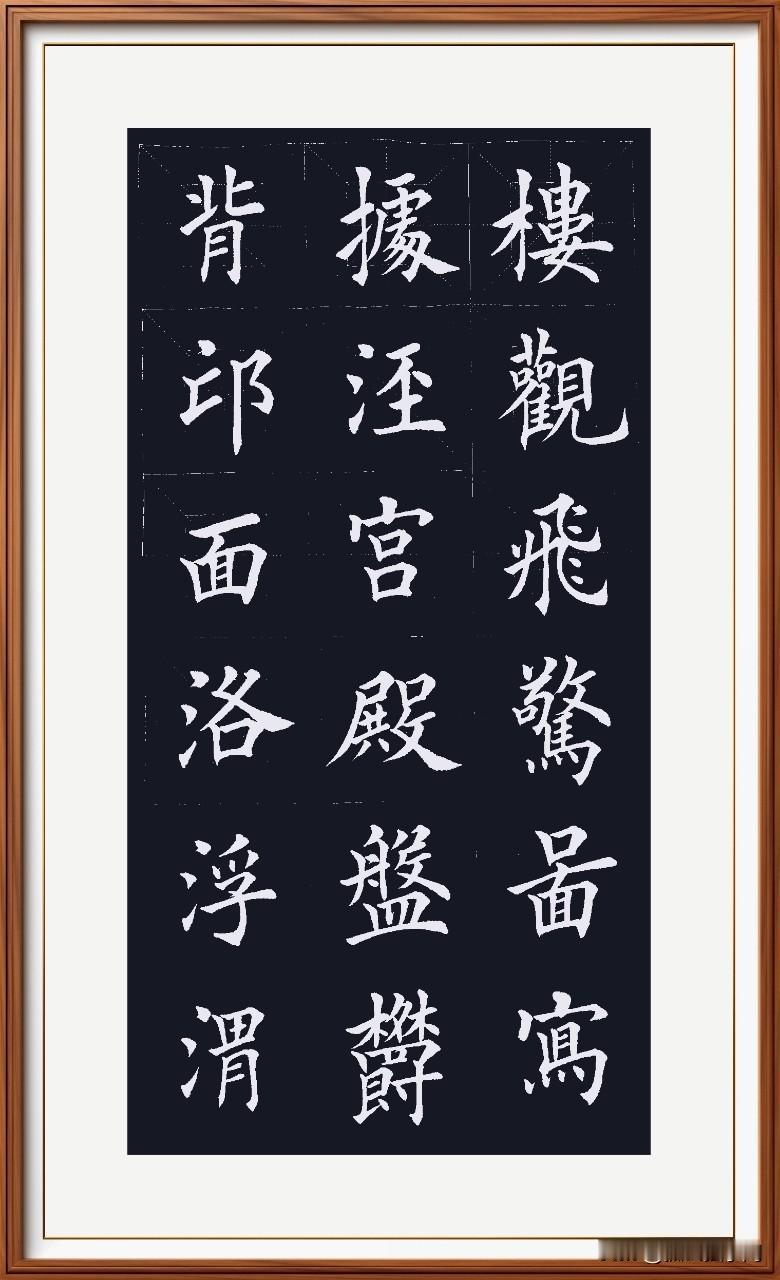 樓觀飛驚啚寫
據涇宮殿盤欝
背邙面洛浮渭